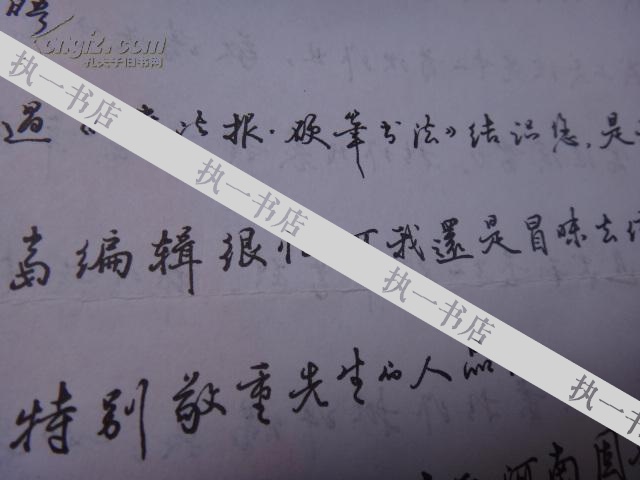 聘
kongfz.com
孔夫子旧书网
过《书法报·硬筆书法》结识您，是
编辑很忙可我還是冒昧去
特别敬重先生的人品
河南周
执一书店
执一书店
执一书店
执一书店